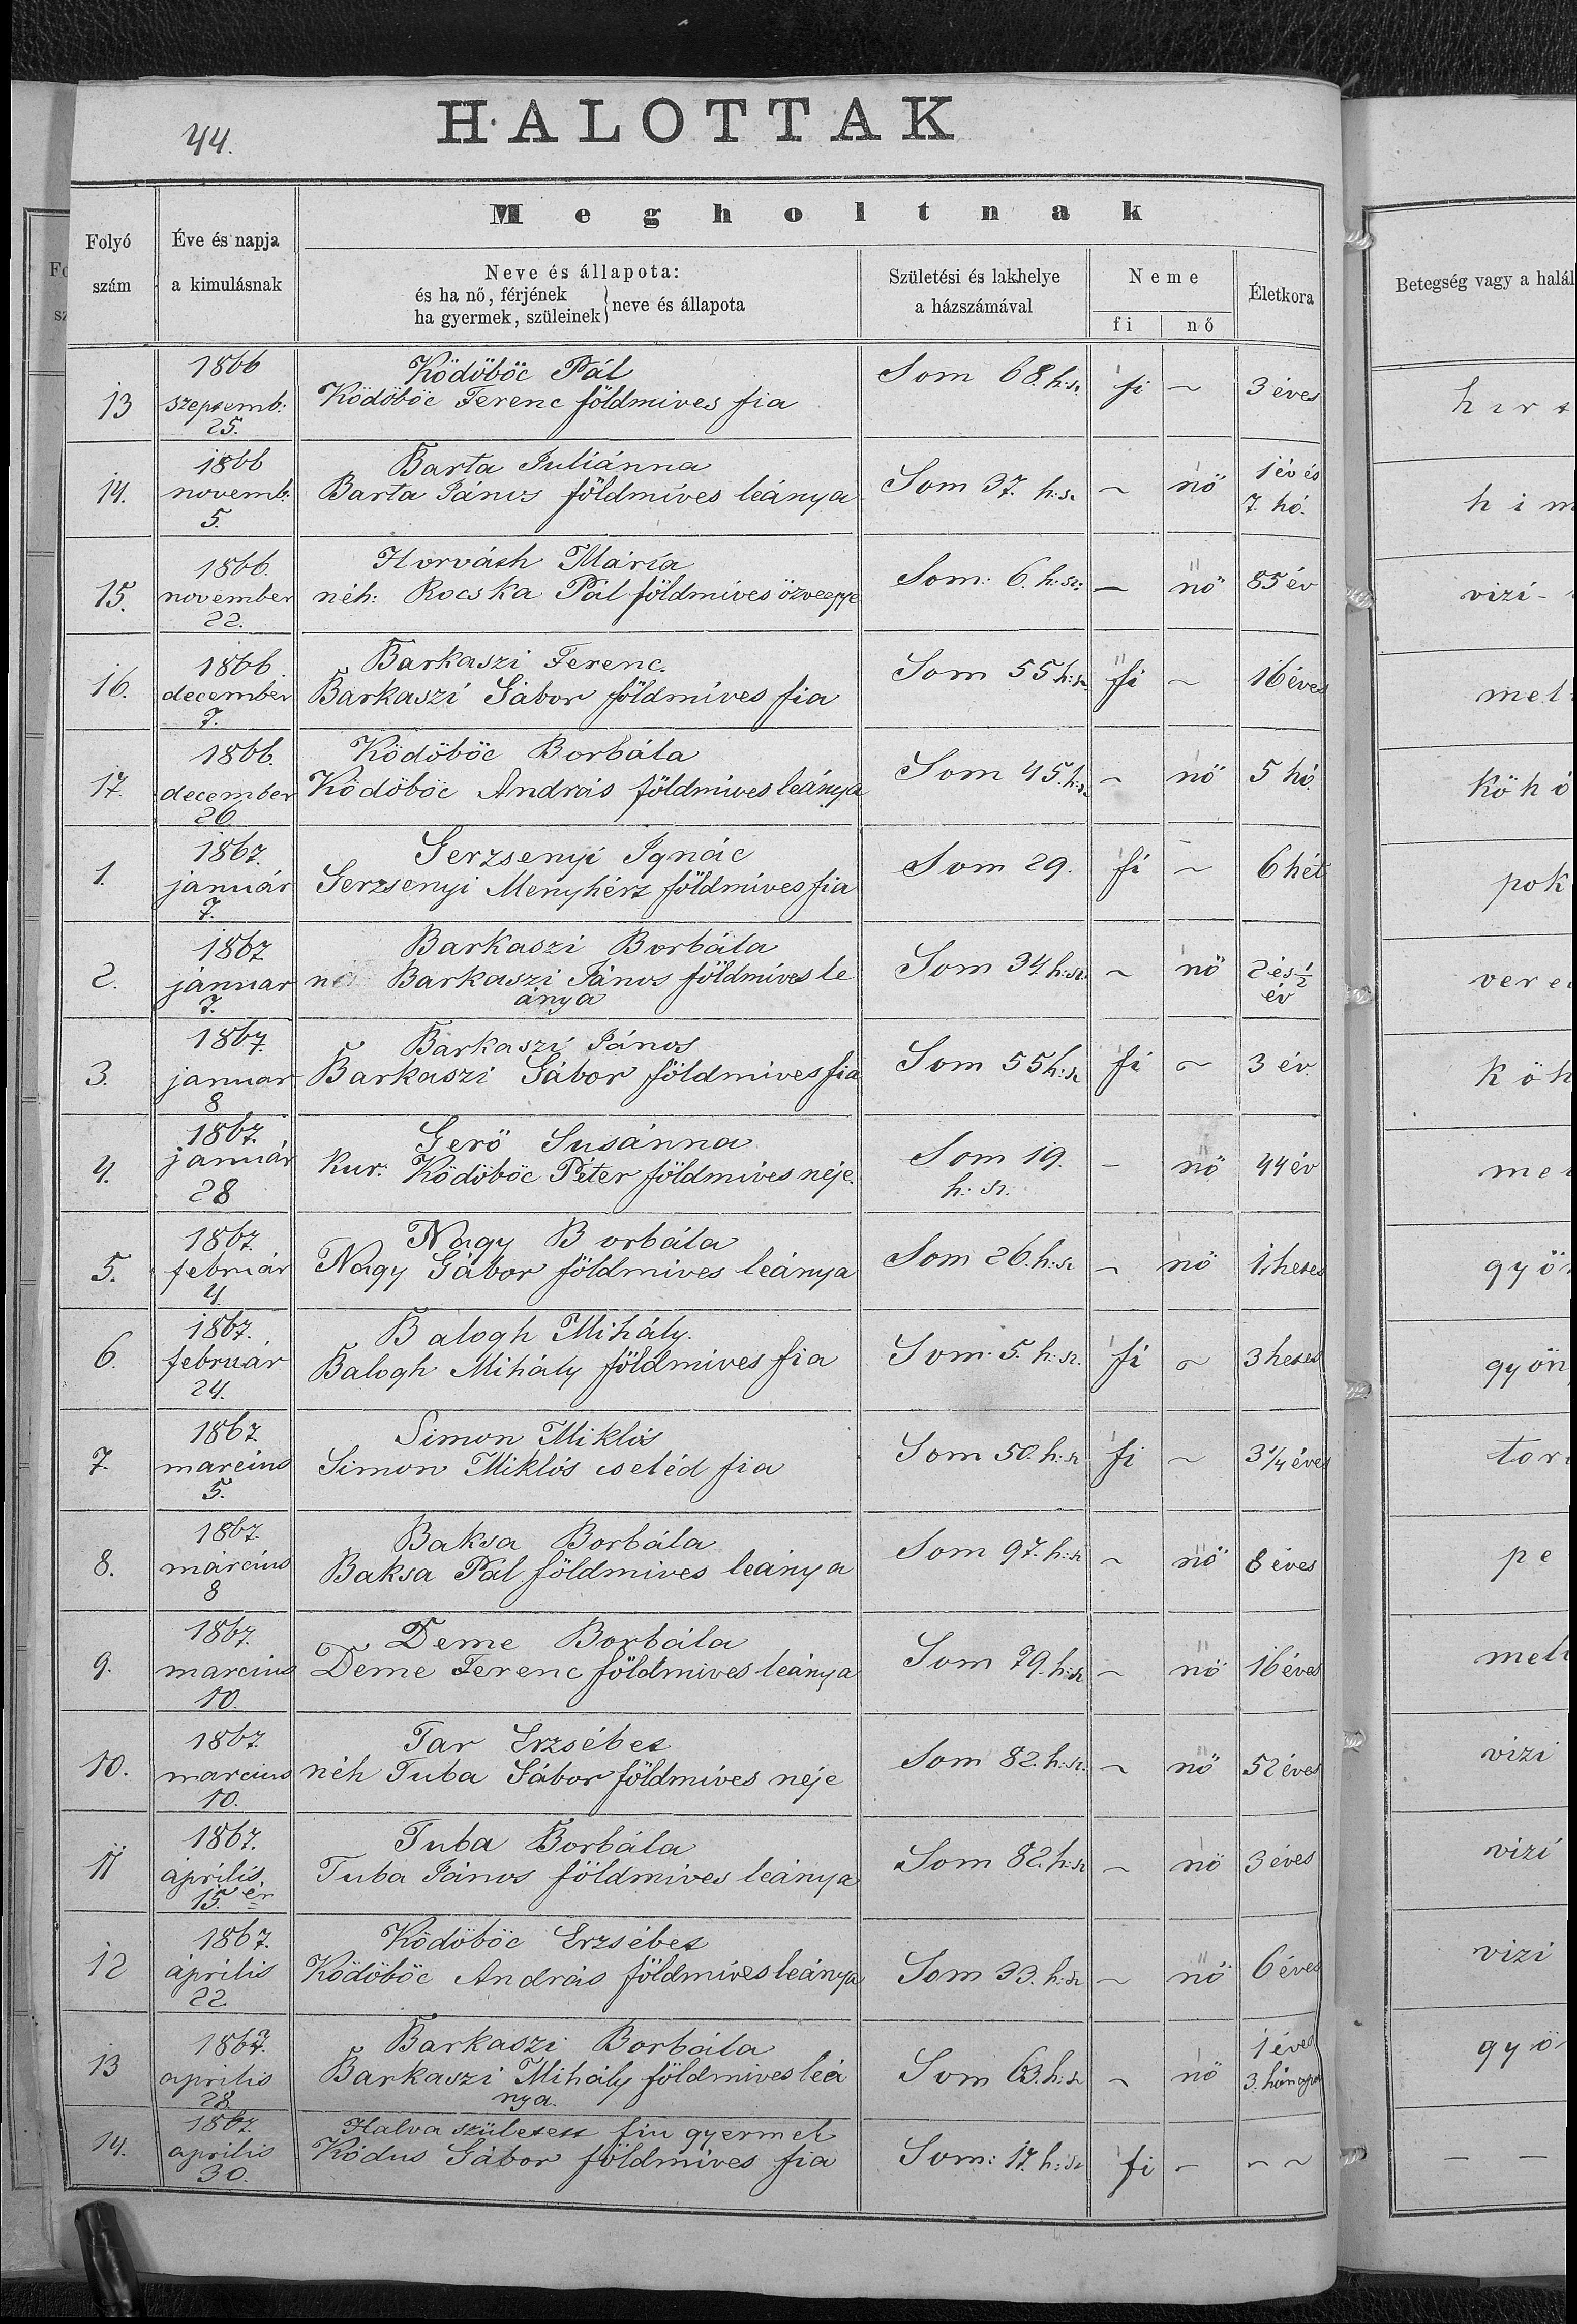 44.
HALOTTAK
Megholtnak
Folyó szám
Éve és napja a kimulásnak
Neve és állapota:
és ha nő, férjének
ha gyermek, szüleinek } neve és állapota
Születési és lakhelye a házszámával
Neme
fi nő
Életkora
Betegség vagy a halál
13 1866 szeptemb: 25. Ködöböc Pál
Ködöböc Ferenc földmives fia Som 68. h:sz. fi ~ 3 éves
14. 1866 novemb: 5. Barta Juliánna
Barta János földmíves leánya Som 37. h:sz. ~ nö 1 év és 7. hó.
15. 1866. november 22. Horváth Mária
néh: Rocska Pál földmíves özvegye Som: 6. h:sz: — nö 85 év
16. 1866. december 7. Barkaszi Ferenc.
Barkaszi Gábor földmíves fia Som 55 h:sz. fi ~ 16 éves
17. 1866. december 26. Ködöböc Borbála
Ködöböc András földmives leánya Som 45. h:sz. ~ nö 5 hó.
1. 1867. január 7. Gerzsenyi Ignác
Gerzsenyi Menyhért földmíves fia Som 29. fi ~ 6 hét
2. 1867 január 7. Barkaszi Borbála
Barkaszi János földmíves le
ánya Som 34. h:sz. ~ nö 2 és 1/2 év
3. 1867. januar 8 Barkaszi János
Barkaszi Gábor földmives fia Som 55 h:sz fi ~ 3 év.
4. 1867. január 28 Gerö Susánna
Kur: Ködöböc Péter földmives neje. Som 19. h: sz. – nö 44 év
5. 1867. február 4. Nagy Borbála
Nagy Gábor földmives leánya Som 26. h:sz ~ nö 1. hetes
6. 1867. február 24. Balogh Mihály.
Balogh Mihály földmives fia Som. 5. h:sz. fi ~ 3 hetes
7. 1867. marcius 5. Simon Miklós
Simon Miklós cseléd fia Som 50. h:sz fi ~ 3 1/4 éves
8. 1867. március 8 Baksa Borbála
Baksa Pál földmives leánya Som 97. h:sz ~ nö 8 éves
9. 1867. marcius 10. Deme Borbála
Deme Ferenc földmives leánya Som 79. h:sz ~ nö 16 éves
10. 1867. marcius 10. Tar Erzsébet
néh Tuba Gábor földmíves neje Som 82. h:sz. ~ nö 52 éves
11 1867. április. 15. én Tuba Borbála
Tuba János földmíves leánya Som 82. h:sz ~ nö 3 éves
12 1867. április 22 Ködöböc Erzsébet
Ködöböc András földmíves leánya Som 33. h:sz ~ nö 6 éves
13 1867. aprilis 28 Barkaszi Borbála
Barkaszi Mihály földmives leá
nya. Som 63. h:sz ~ nö 1 éves 3. hónapos
14. 1867. aprilis 30. Halva született fiu gyermek
Ködus Gábor földmíves fia Som: 17. h:sz fi ~ ~ ~
vizi-
mel
Köhö
pok
vere
köh
gyön
pe
vizi
vizi
vizi
gyön
– –